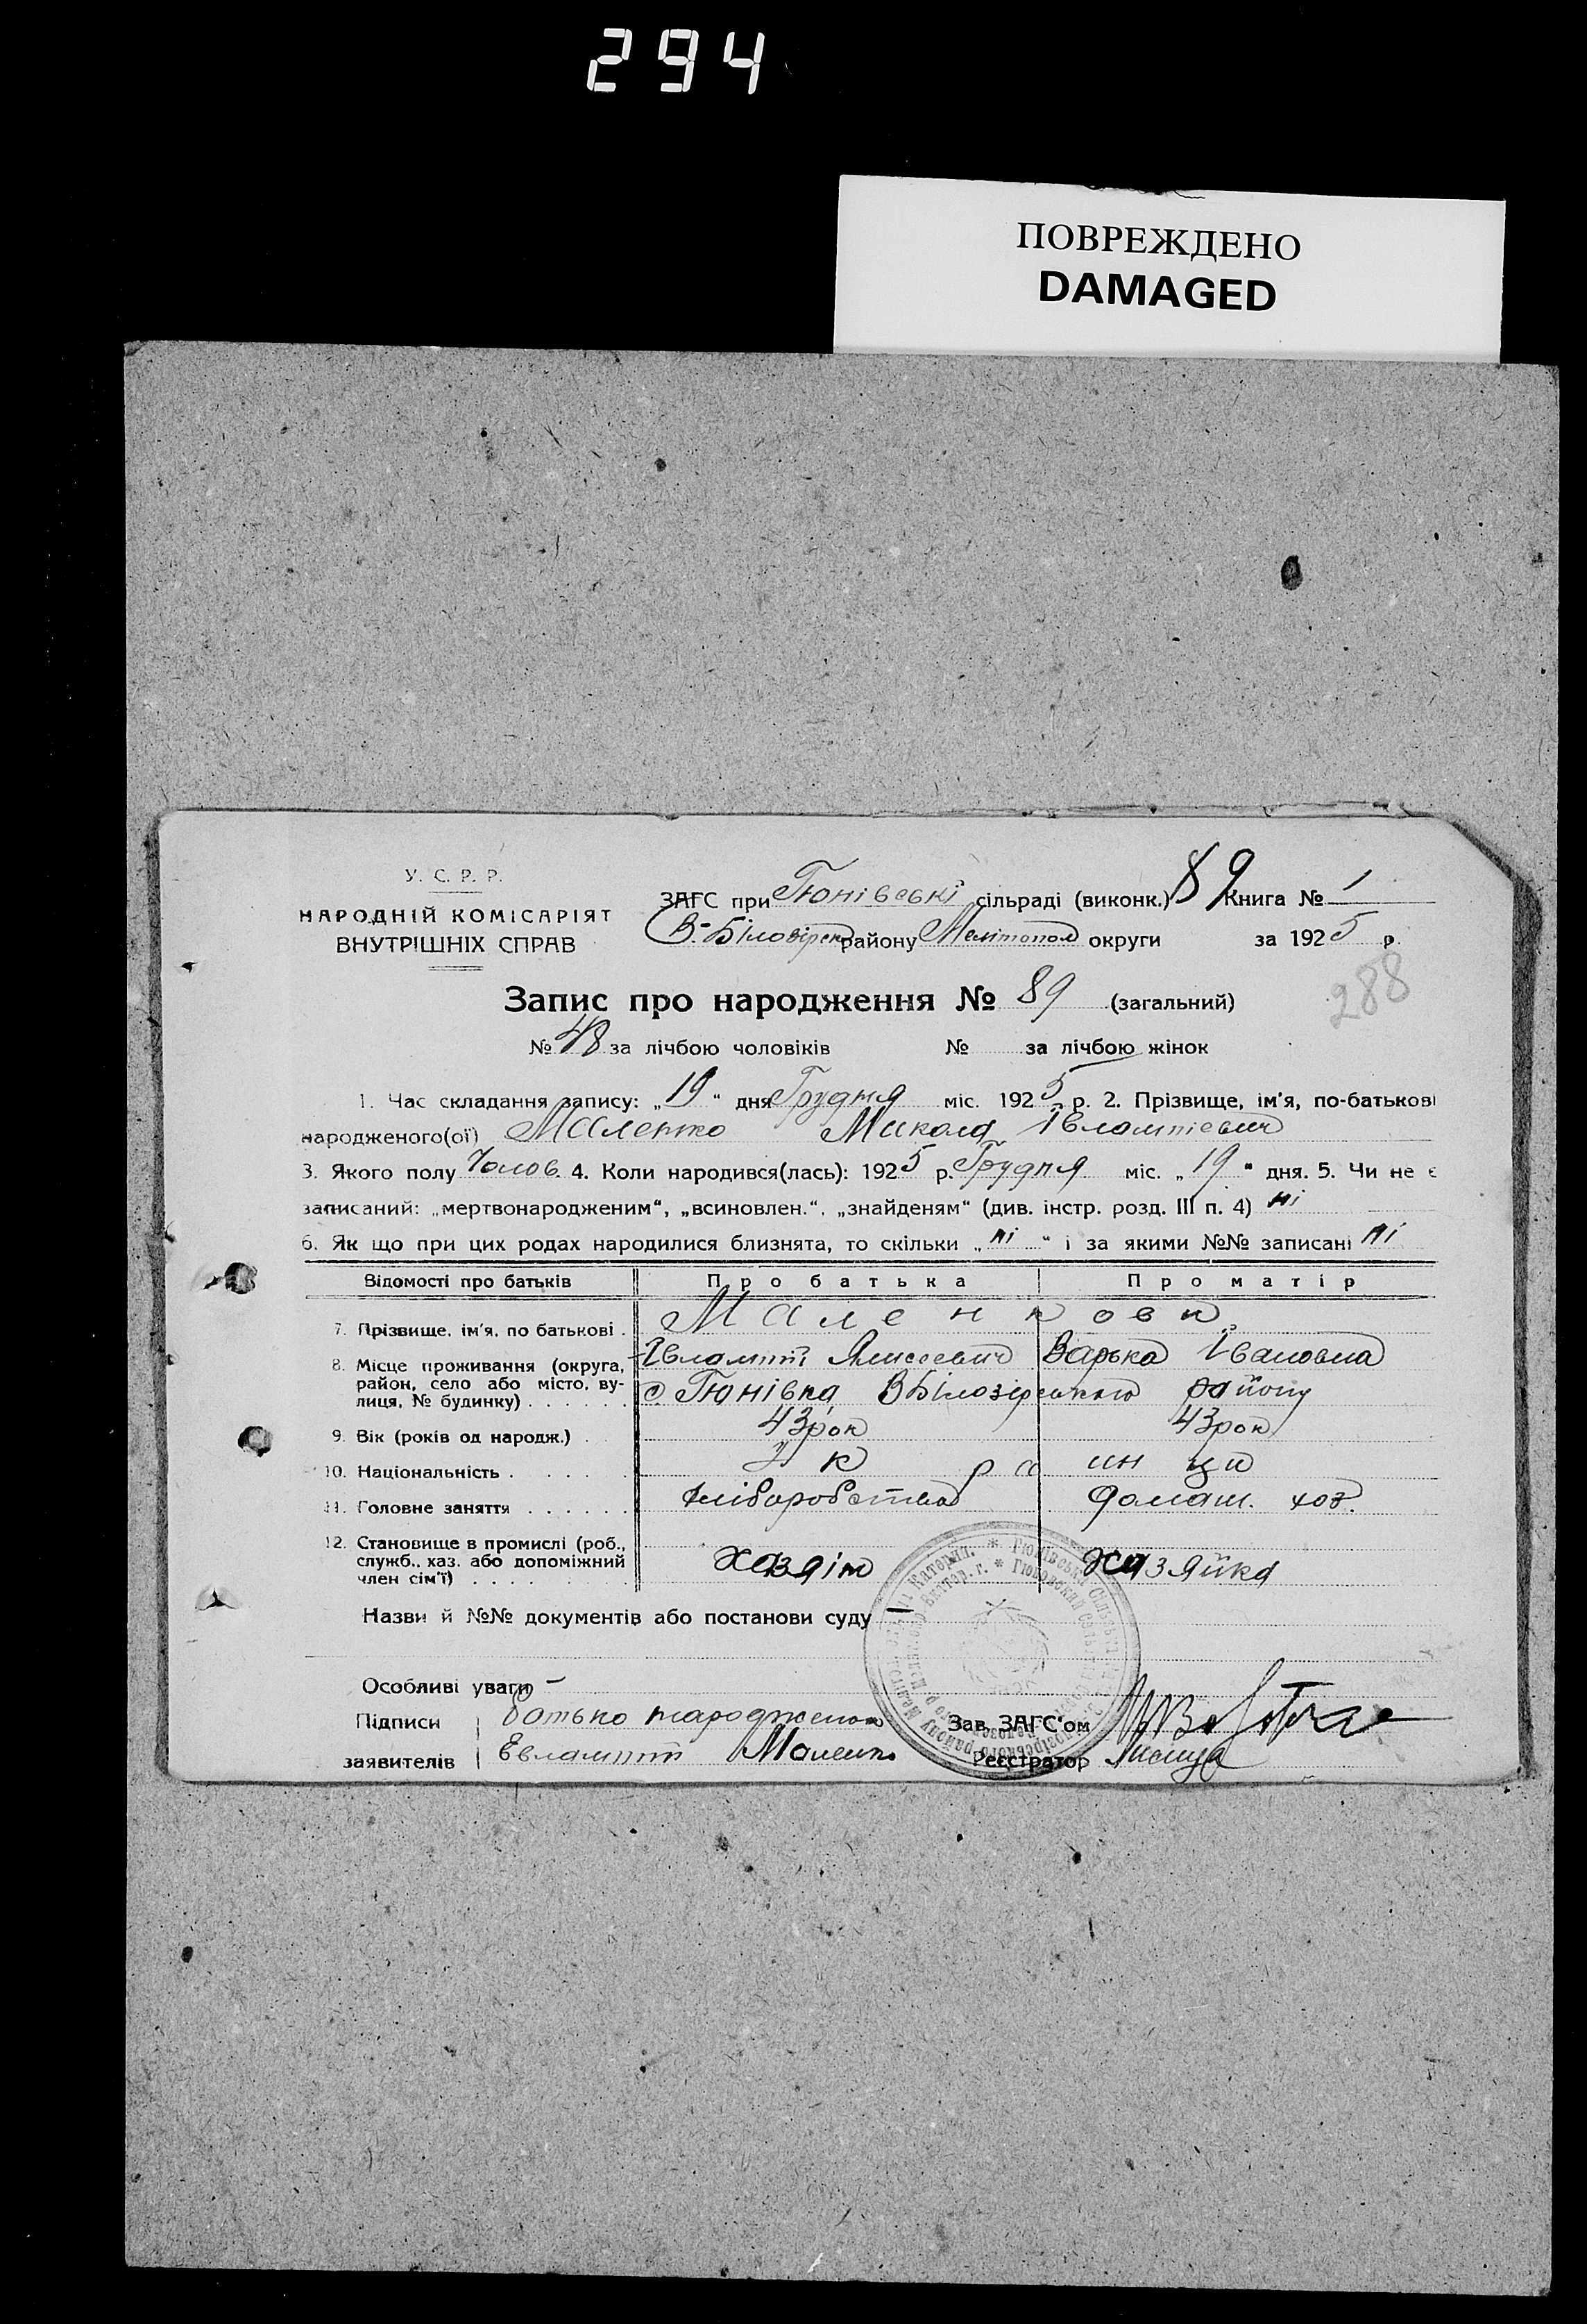 294
ПОВРЕЖДЕНО
DAMAGED
У. С. Р. Р.
НАРОДНІЙ КОМІСАРІЯТ
ВНУТРІШНІХ СПРАВ
ЗАГС при Гюнівські сільраді (виконк.) 89 Книга № 1
В-Білозірськ району Мелітопол округи за 1925 р.
288
Запис про народження № 89 (загальний)
№ 48 за лічбою чоловіків № за лічбою жінок
1. Час складання запису: „19“ дня Грудня міс. 1925 р. 2. Прізвище, ім'я, по-батькові
народженого(ої) Маленко Микола Івлампієвич
3. Якого полу Чолов. 4. Коли народився(лась): 1925 р. Грудня міс. „19“ дня. 5. Чи не є
записаний: „мертвонародженим“, „всиновлен.“, „знайденям“ (див. інстр. розд. III п. 4) ні
6. Як що при цих родах народилися близнята, то скільки „ні“ і за якими №№ записані ні
Відомості про батьків Про батька Про матір
7. Прізвище, ім'я, по батькові . Маленкови
8. Місце проживання (округа, Івлампій Варька Івановна
район, село або місто, ву- с. Гюнівка В Білозірського району
лиця, № будинку) . . . . . .
9. Вік (років од народж.) . . 43 рок 43 рок
10. Національність . . . . . Украинци
11. Головне заняття . . . . . . Хліборобство домаш. хоз.
12. Становище в промислі (роб.,
служб., хаз. або допоміжний хазяін хазяйка
член сім'ї) . . . .
Назви й №№ документів або постанови суду —
Особливі уваги —
Підписи батько народженого Зав. ЗАГС'ом
заявителів Евлампий Маленко Реєстратор Лисица